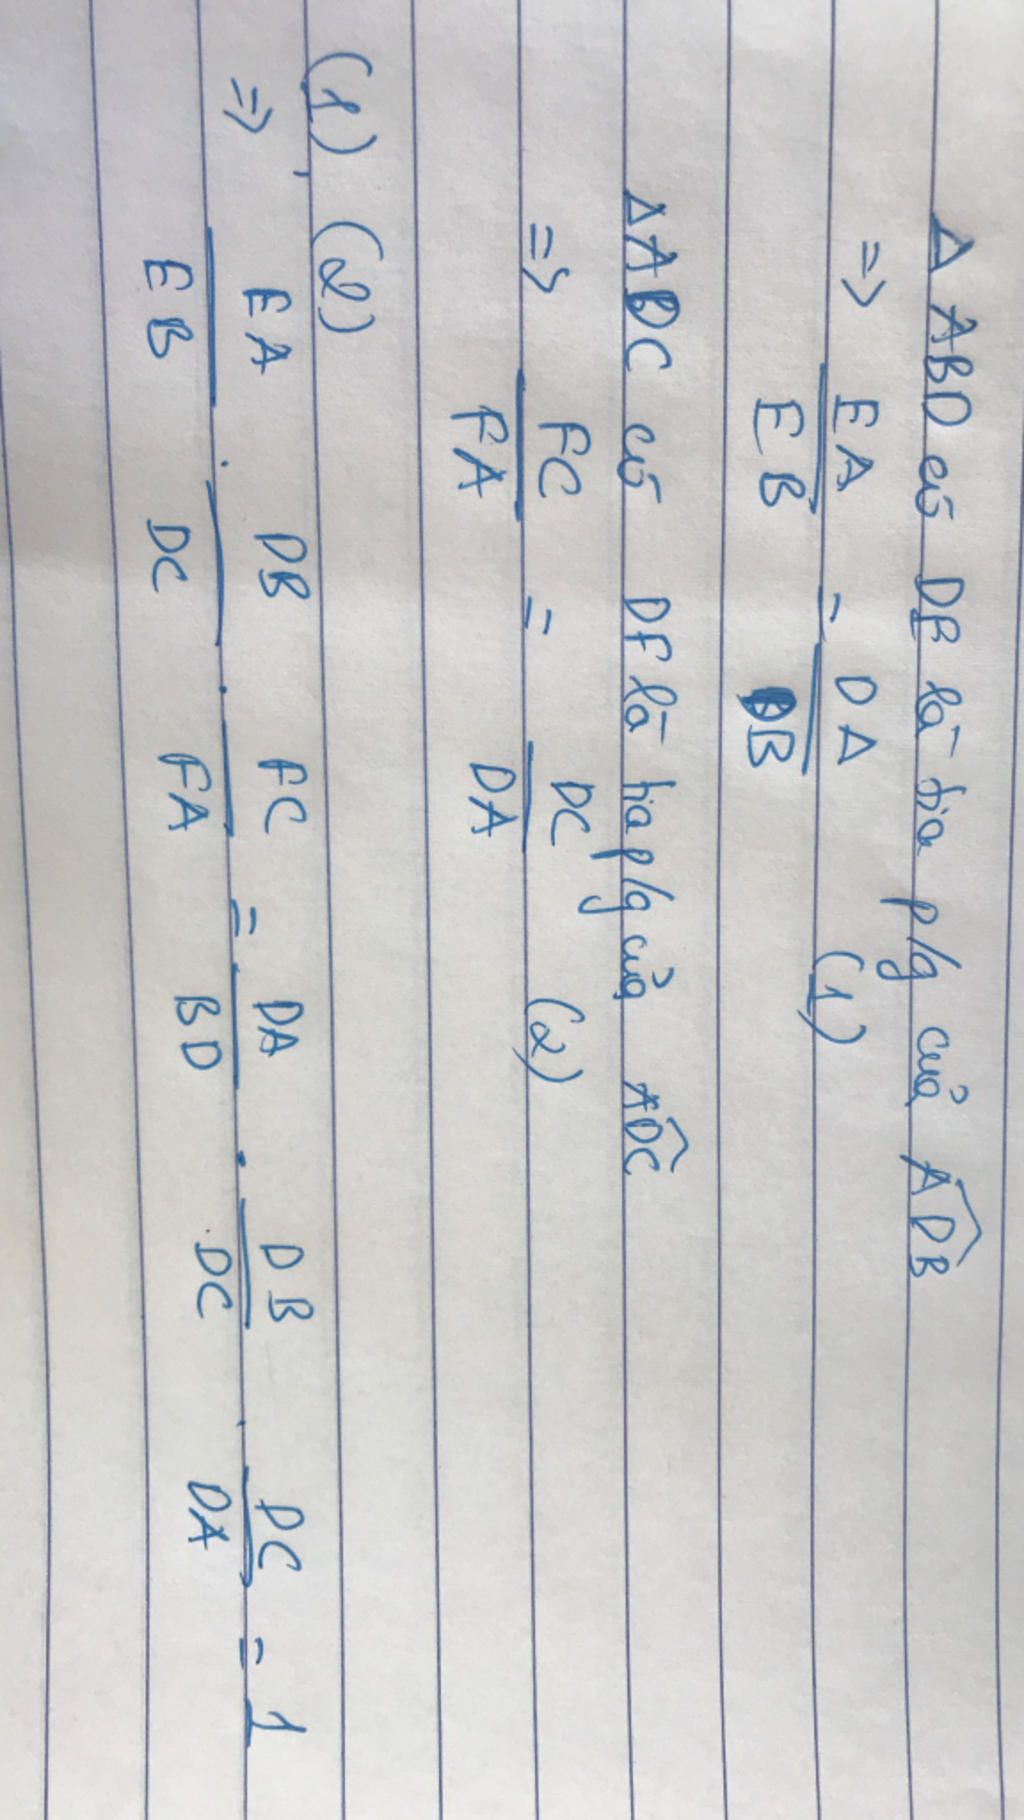 Δ ABD có DE là tia p/g của ADB
=> EA/EB = DA/DB (1)
ΔADC có DF là tia p/g của ADC
=> FC/FA = DC/DA (2)
(1), (2)
=> EA/EB . DB/DC . FC/FA = DA/BD . DB/DC . DC/DA = 1